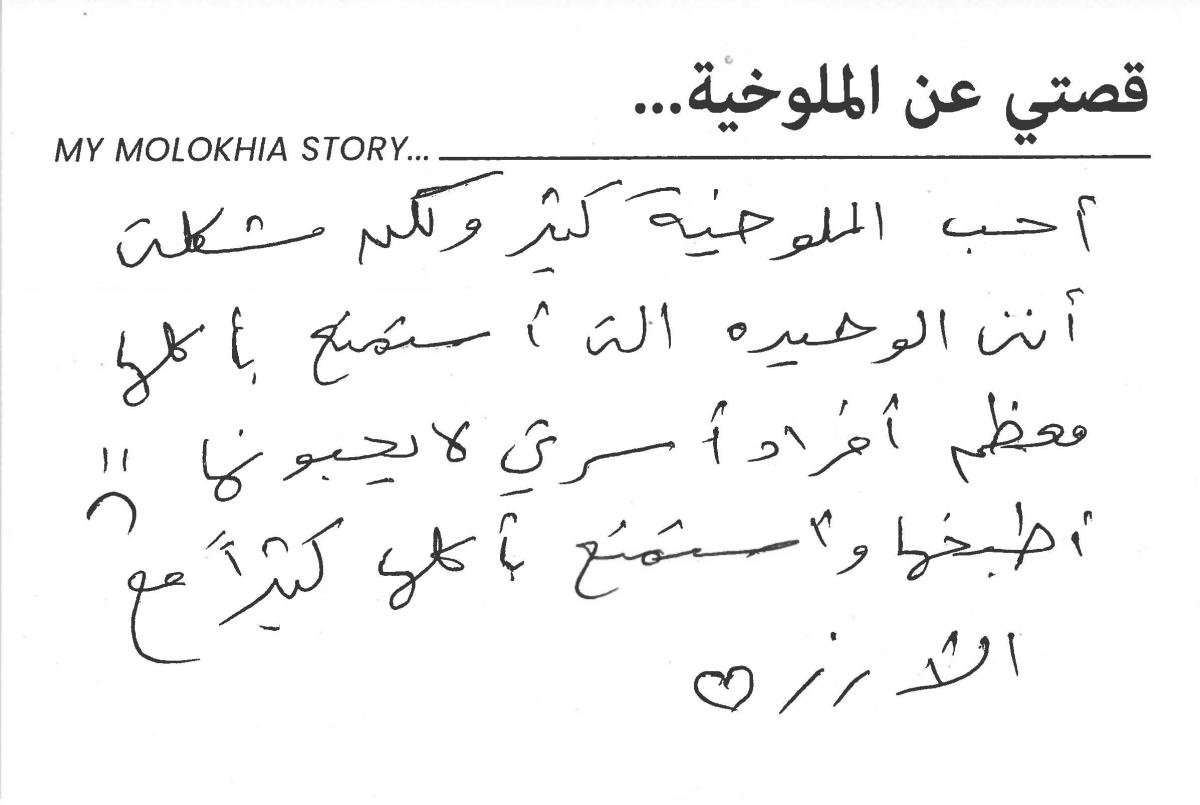 قصتي عن الملوخية...
MY MOLOKHIA STORY...
أحب الملوخية كثير ولكن مشكلتي
أنني الوحيده التي أستمتع بأكلها
معظم أفراد أسرتي لا يحبونها :(
أطبخها وأستمتع بأكلها كثيراً مع
الأرز ♡